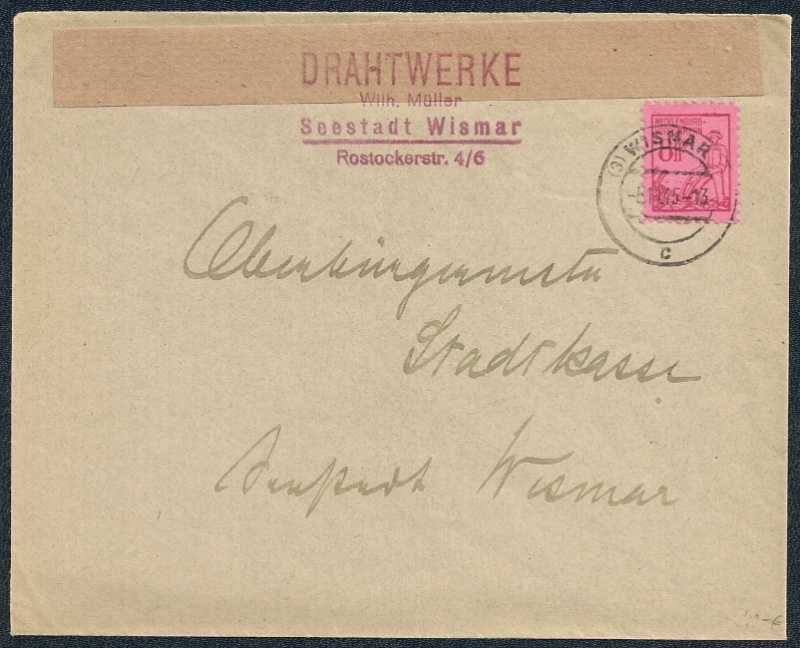 DRAHTWERKE
Wilh. Müller
Seestadt Wismar
Rostockerstr. 4/6
MECKLENBURG-
(3) WISMAR
45.-13
c
Oberbürgermstr
Stadtkasse
Seestadt Wismar